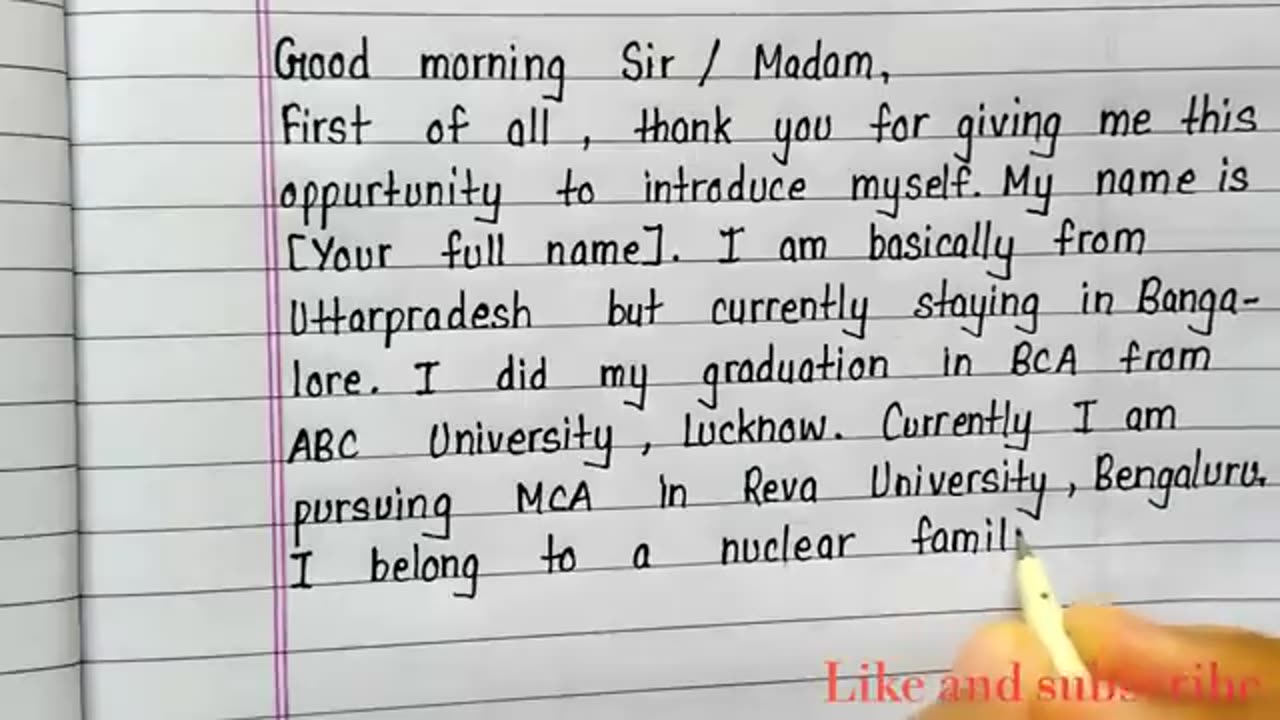 Good morning Sir / Madam,
First of all, thank you for giving me this
oppurtunity to introduce myself. My name is
[Your full name]. I am basically from
Uttarpradesh but currently staying in Banga-
lore. I did my graduation in BCA from
ABC University, Lucknow. Currently I am
pursuing MCA in Reva University, Bengaluru.
I belong to a nuclear famil
Like and subscribe